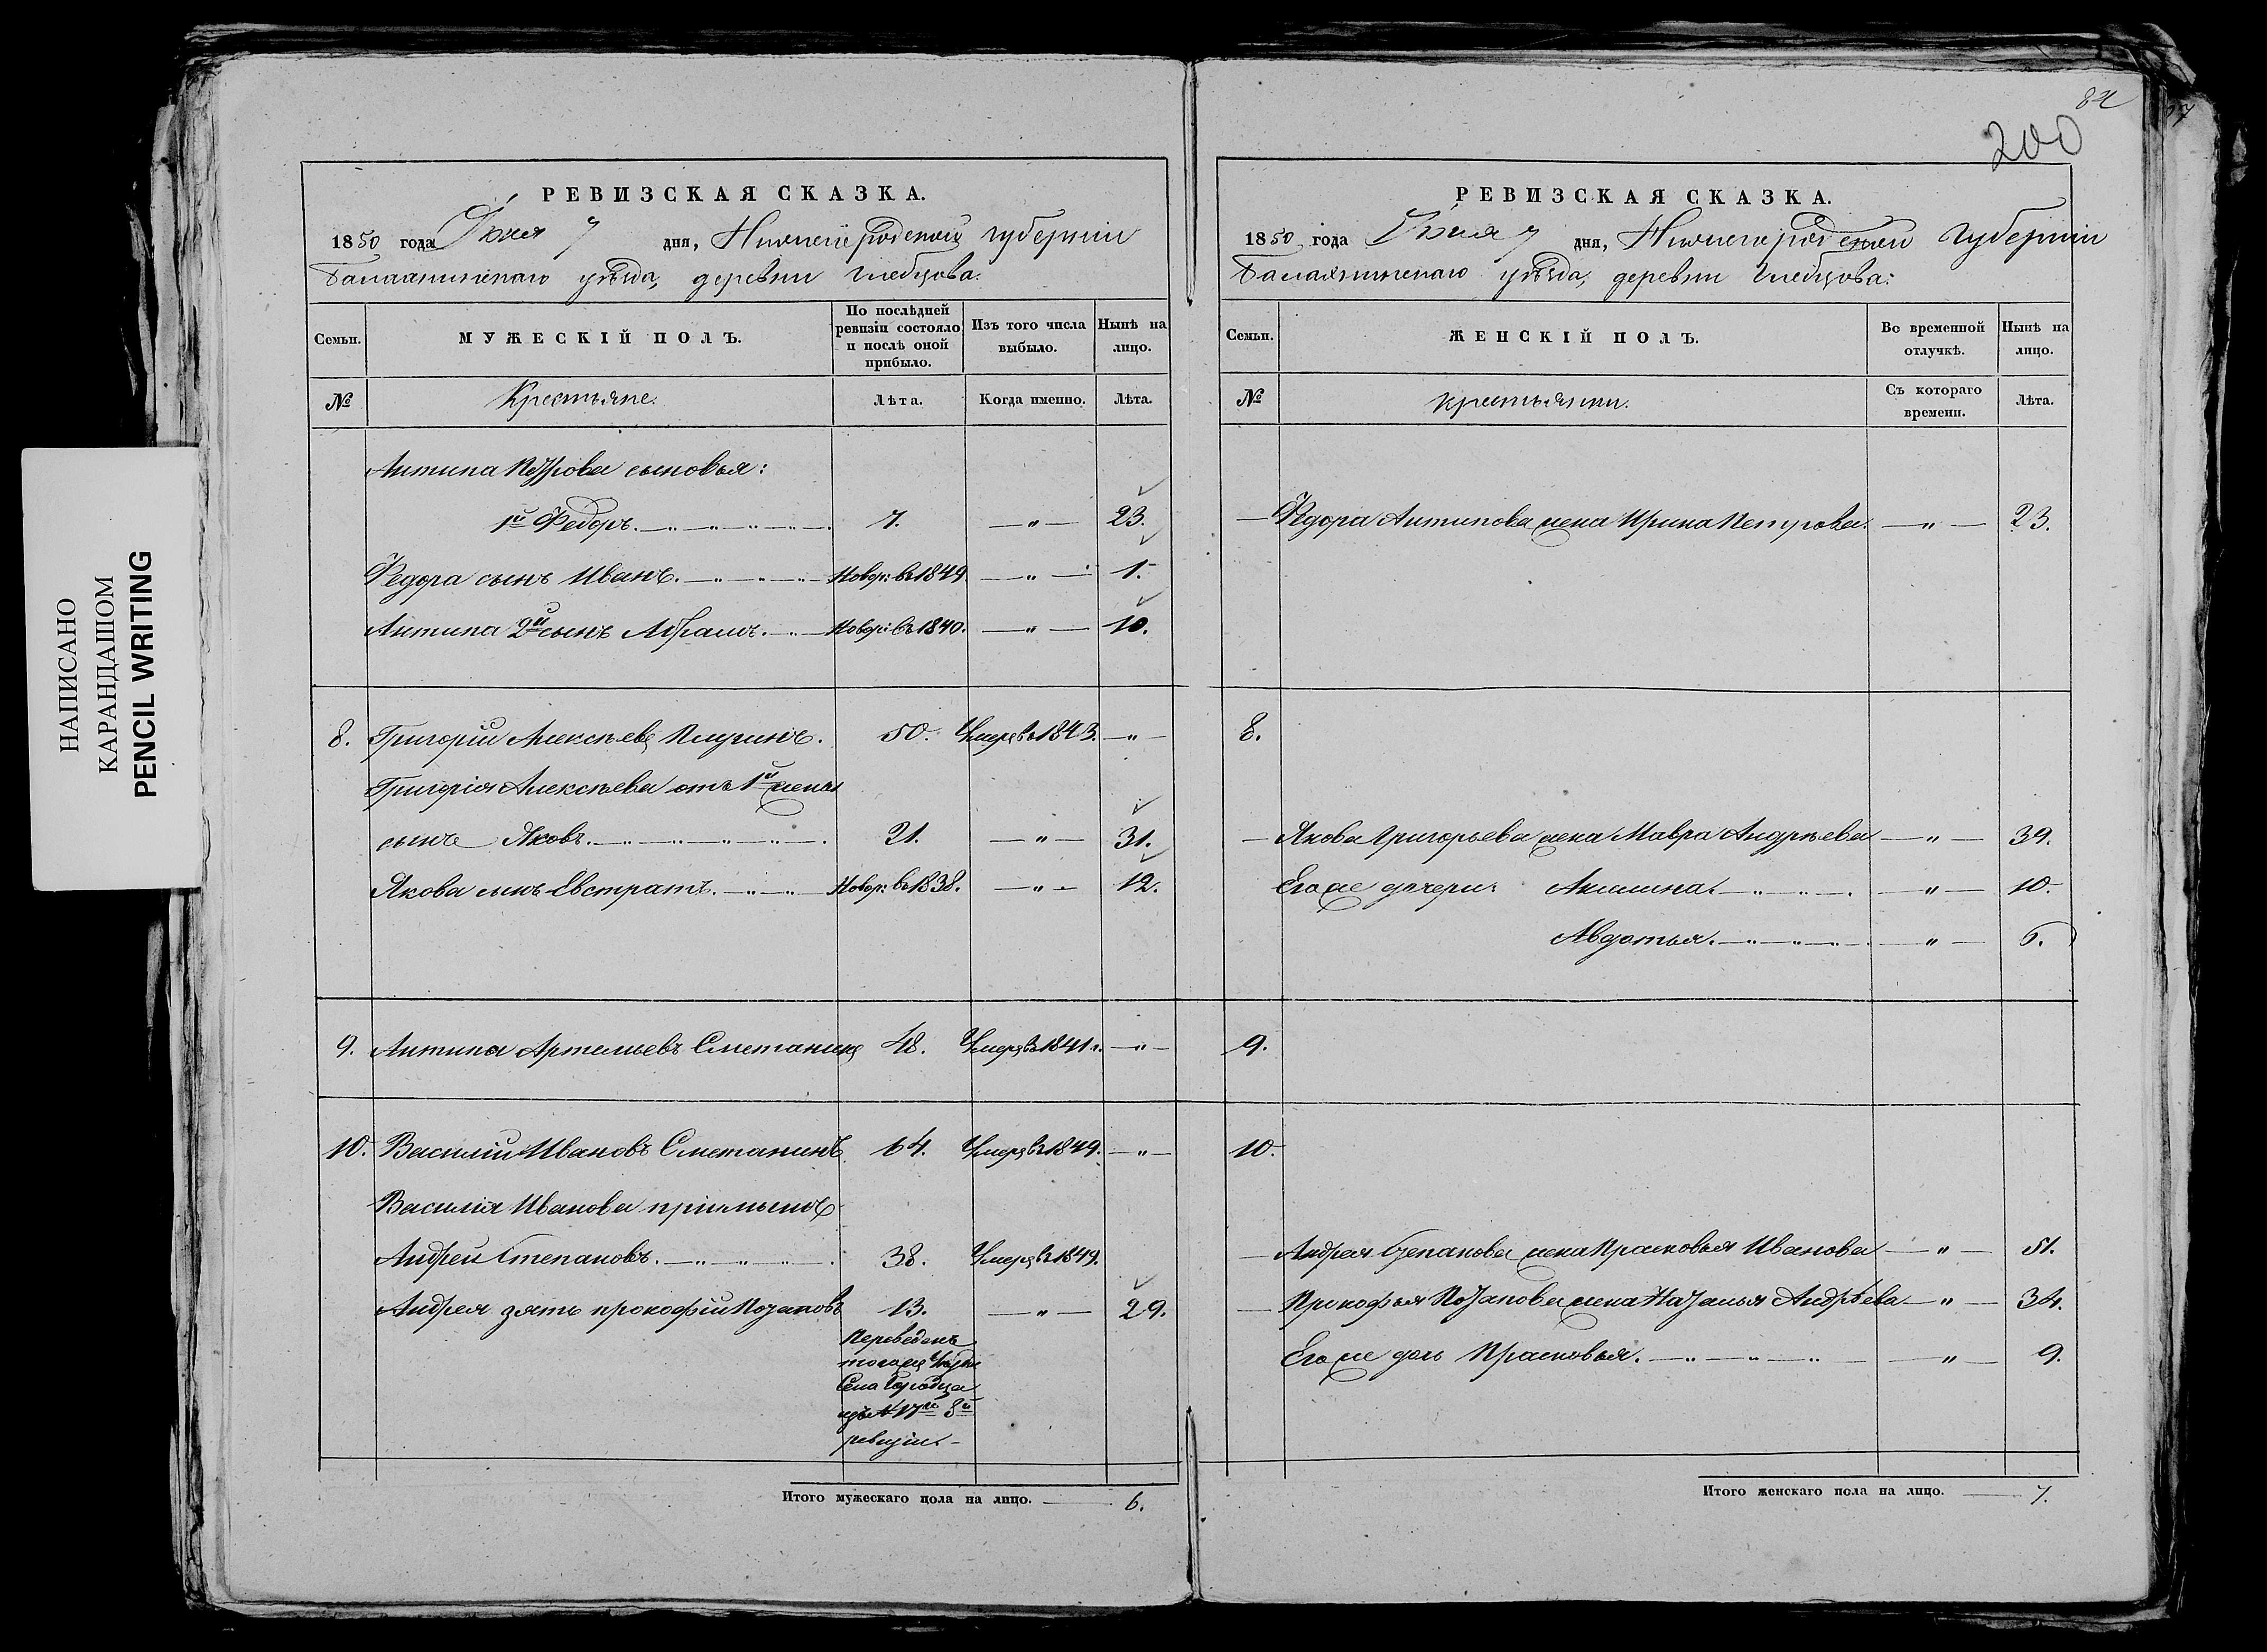 НАПИСАНО
КАРАНДАШОМ
PENCIL WRITING
РЕВИЗСКАЯ СКАЗКА.
1850 года Июня 7 дня, Нижегородской губернии
Балахнинскаго уѣзда, деревни Глебцова:
Семьи.
МУЖЕСКІЙ ПОЛЪ.
По послѣдней ревизіи состояло и послѣ оной прибыло.
Изъ того числа выбыло.
Нынѣ на лицо.
№
Крестьяне.
Лѣта.
Когда именно.
Лѣта.
Антипа Петрова сыновья:
1й Федоръ. 7. — " — 23.
Федора сынъ Иванъ. Новор: въ 1849. — " — 1.
Антипа 2й сынъ Абрамъ. Новор: въ 1840. — " — 10.
8. Григорій Алексѣевъ 50. Умеръ въ 1843. — " —
Григорія Алексѣева отъ 1й жены
сынъ Яковъ. 21. — " — 31.
Якова сынъ Евстратъ. Новор: въ 1838. — " — 12.
9. Антипа Артемьевъ Сметанинъ 48. Умеръ въ 1841 г. — " —
10. Василій Ивановъ Сметанинъ 64. Умеръ въ 1849. — " —
Василія Иванова пріимышъ
Андрей Степановъ. 38. Умеръ въ 1849.
Андрея зять Прокофій Потаповъ 13. — " — 29.
Переведенъ
тогоже
Села Городца
изъ № 17го 8й
ревизіи.
Итого мужескаго пола на лицо. 6.
84
200
РЕВИЗСКАЯ СКАЗКА.
1850 года Июня 7 дня, Нижегородской Губерніи
Балахнинскаго уѣзда, деревни Глебцова:
Семьи.
ЖЕНСКІЙ ПОЛЪ.
Во временной отлучкѣ.
Нынѣ на лицо.
№
Крестьянки.
Съ котораго времени.
Лѣта.
— Федора Антипова жена Ирина Петрова. — " — 23.
8.
— Якова Григорьева жена Мавра Андрѣева — " — 39.
Его же дочери: Акилина. — " — 10.
Авдотья. — " — 6.
9.
10.
— Андрея Степанова жена Прасковья Иванова — " — 51.
— Прокофья Потапова жена Наталья Андрѣева — " — 34.
Его же дочь Прасковья. — " — 9.
Итого женскаго пола на лицо. 7.